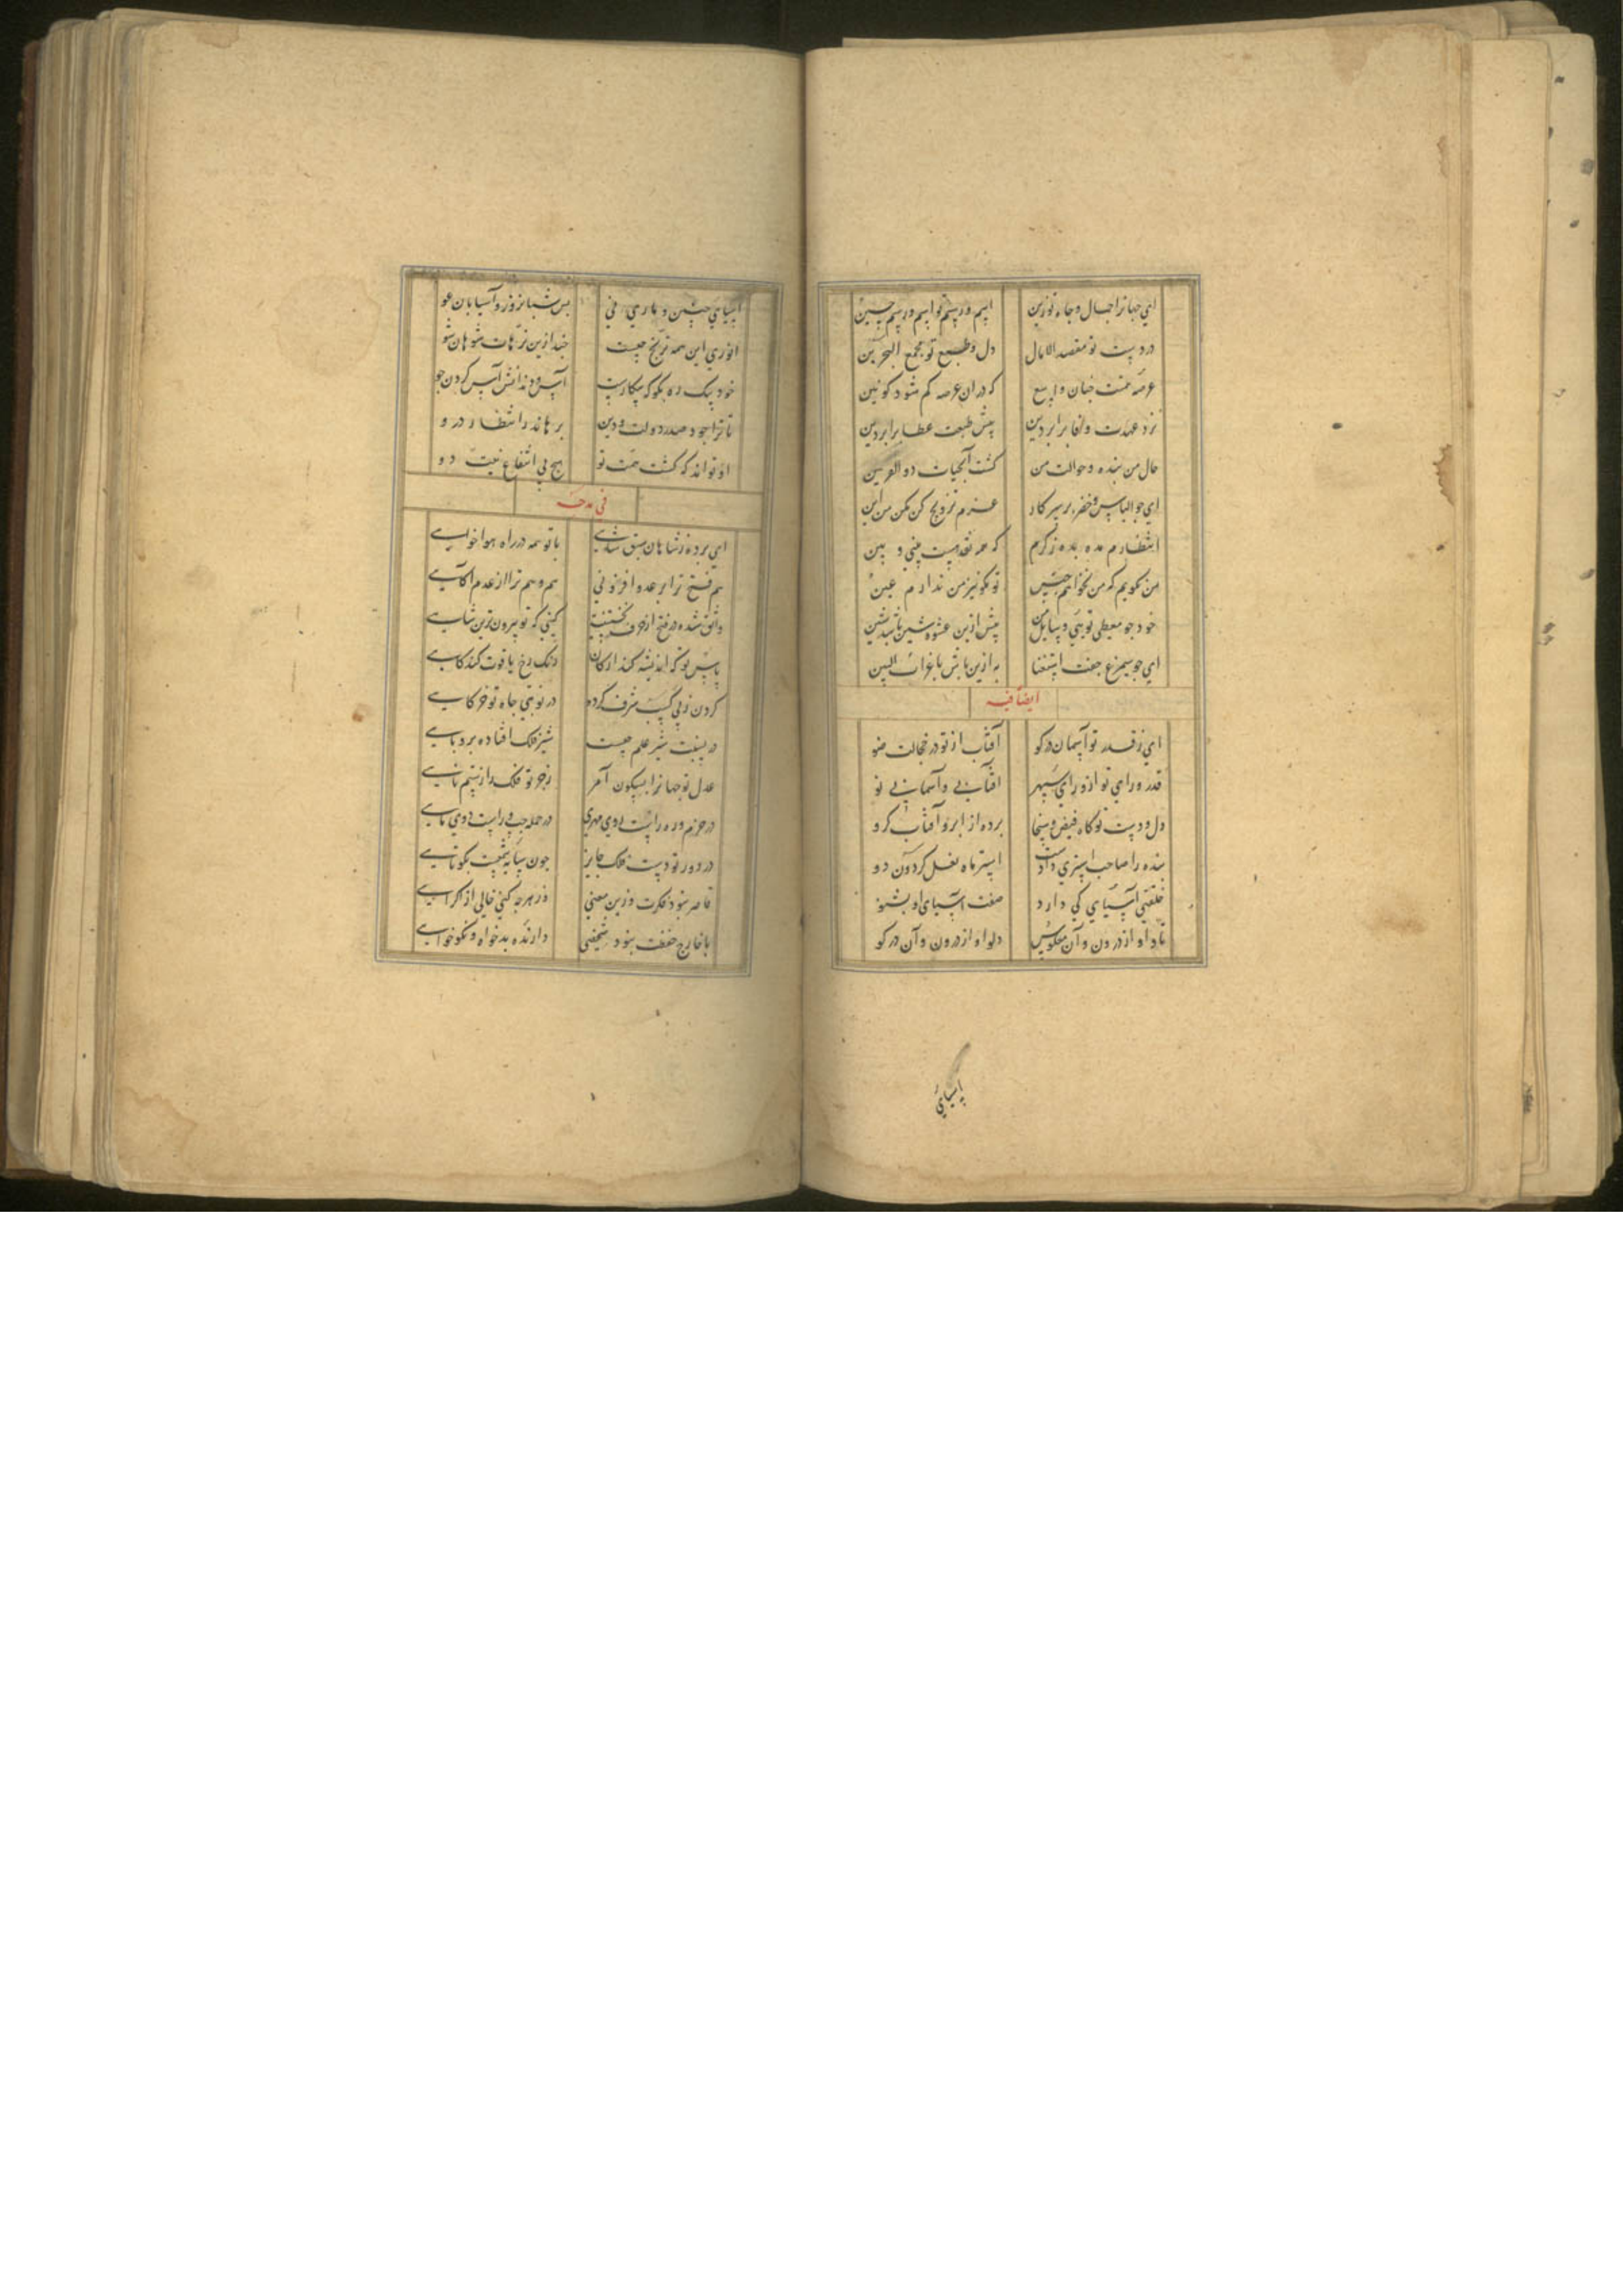 ای جهانرا جمال و جاه تو زین اسم و رسم تو اسم و رسم حسین
در دست تو مقصد الامال دل و طبع تو مجمع البحرین
عرصه همتت چنان واسع که دران عرصه کم شود کونین
نزد عهدت وفا برابر دین پیش طبعت عطا برابر دین
حال من بنده و حوالت من کشت آبحیات ذو القرنین
ای چو الیاس و خضر بر سر کار عزم ترویج کن مکن من این
انتظارم مده بده ز کرم که همه نقد نیست بینی و بین
من نکویم که من نخواهم جنس تو نکو نیز من ندارم عین
خود چو معطی تویی و سایل من پیش ازین عشوه شین باشد شین
ای چو سیمرغ جفت استغنا به ازین باش با غراب البین
ایضا فیه
ای ز قدر تو آسمان در کو آفتاب از تو در خجالت ضو
قدر و رای تو از ورای سپهر آفتابی و آسمانی نو
دل و دست تو کاه فیض و سخا برده از ابر و آفتاب کرو
بنده را صاحب استری دادست استر ماه نعل کردون دو
خلقتی آسیای کی دارد صفت آسیای او بشنو
ناو او از درون و آن معکوس دلو او از درون و آن در کو
آسیای
آسیای چنین و باری نی بس شبانروز و آسیابان عو
انوری این همه ترنج چیست چند ازین ترهات شو هان شو
خود بیک ره بکو که بیکارست آس و دندانش آس کردن جو
تا ترا جود صدر دولت و دین برهاند ز انتظار درو
او تواند که کشت همت تو هیچ بی انتفاع نیست دو
فی مدحه
ای برده ز شاهان سبق شاهی با تو همه در راه هواخواهی
هم فتح ترا بر عدو افزونی هم وهم ترا از عدم آکاهی
واثق شده در فتح از حرف نخستینت کیتی که تو بیرون ترین شاهی
پاس تو که اندیشه کند از کان رنک رخ یاقوت کند کاهی
کردن ز پی کسب شرف کرده در نوبتی جاه تو خرکاهی
در نسبت شیر علم جیشت شیر فلک افتاده بروباهی
عدل تو جهانرا بسکون آمر زجر تو فلک را ز ستم ناهی
در حزم وره راست روی مهری در حمله چپ و راست دوی ماهی
در دور تو دست فلک جابر چون سایه شمعیت بکوتاهی
قاصر نبود فکرت و زین معنی در هرچه کنی خالی از اکراهی
با خارج حفظت نبود شخصی دارنده بدخواه و نکوخواهی